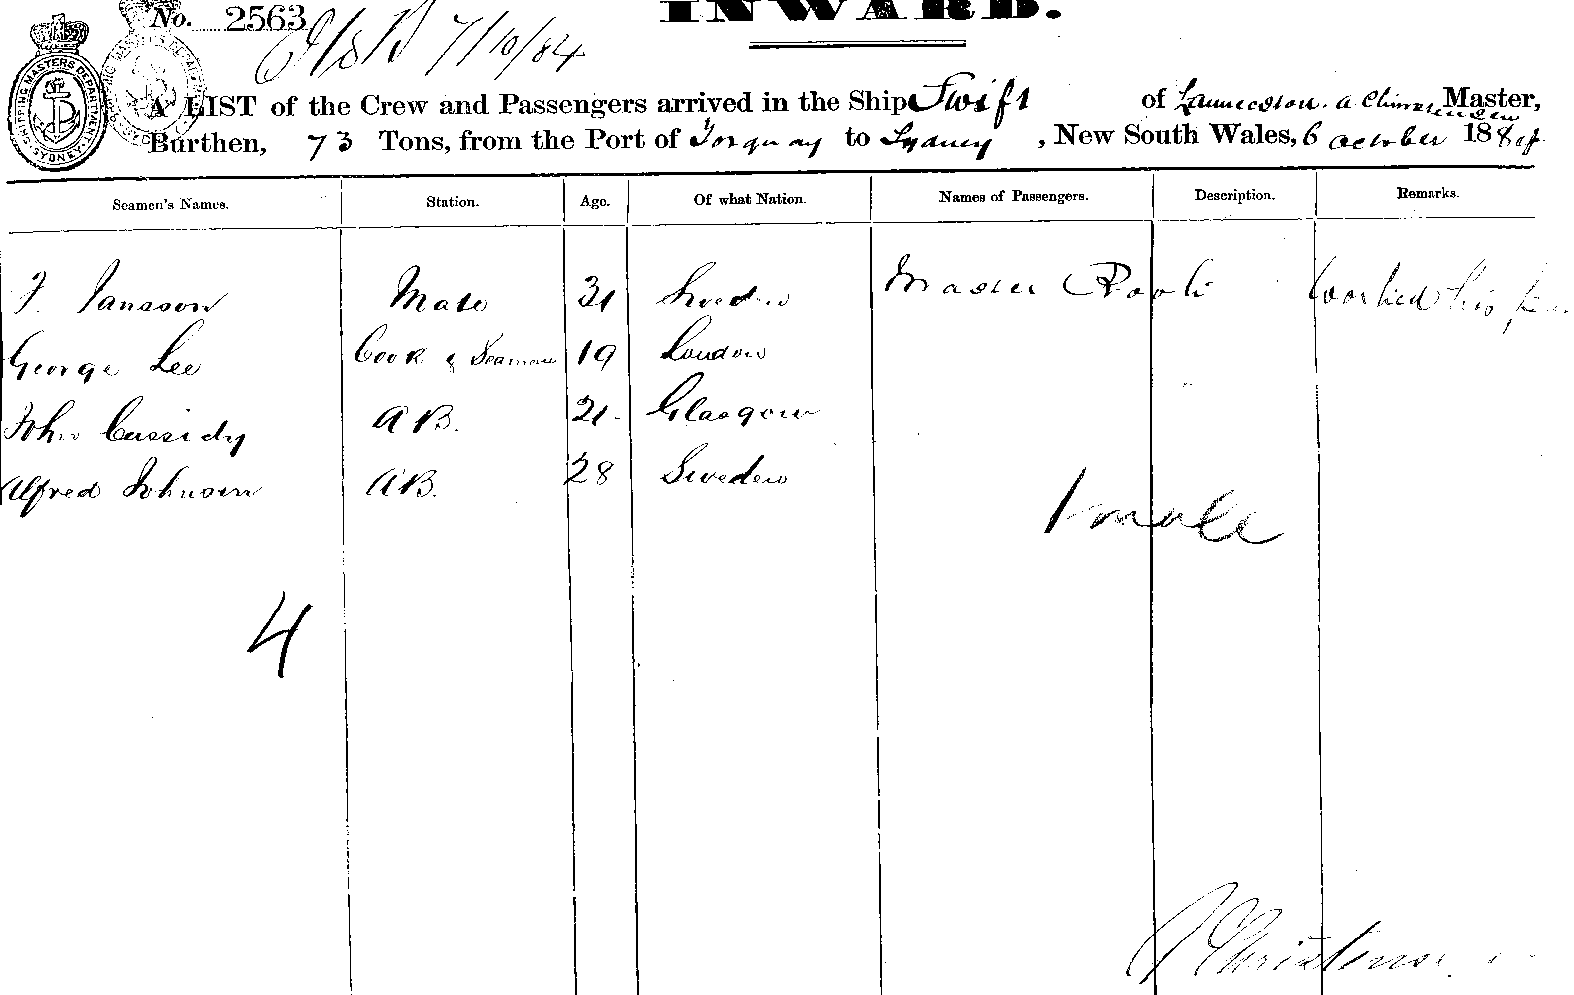 INWARD.
No. 2563
7/10/84
SHIPPING MASTERS DEPARTMENT SYDNEY
A LIST of the Crew and Passengers arrived in the Ship Swift of Launceston. a Master,
Burthen, 73 Tons, from the Port of Torquay to Sydney, New South Wales, 6 October 1884
Seamen's Names. Station. Age. Of what Nation. Names of Passengers. Description. Remarks.
J. Jansson Mate 31 Sweden Master worked his
George Lee Cook & Seaman 19 London
John Cassidy AB. 21 Glasgow
Alfred Johnson AB. 28 Sweden
1 male
4
Christensen